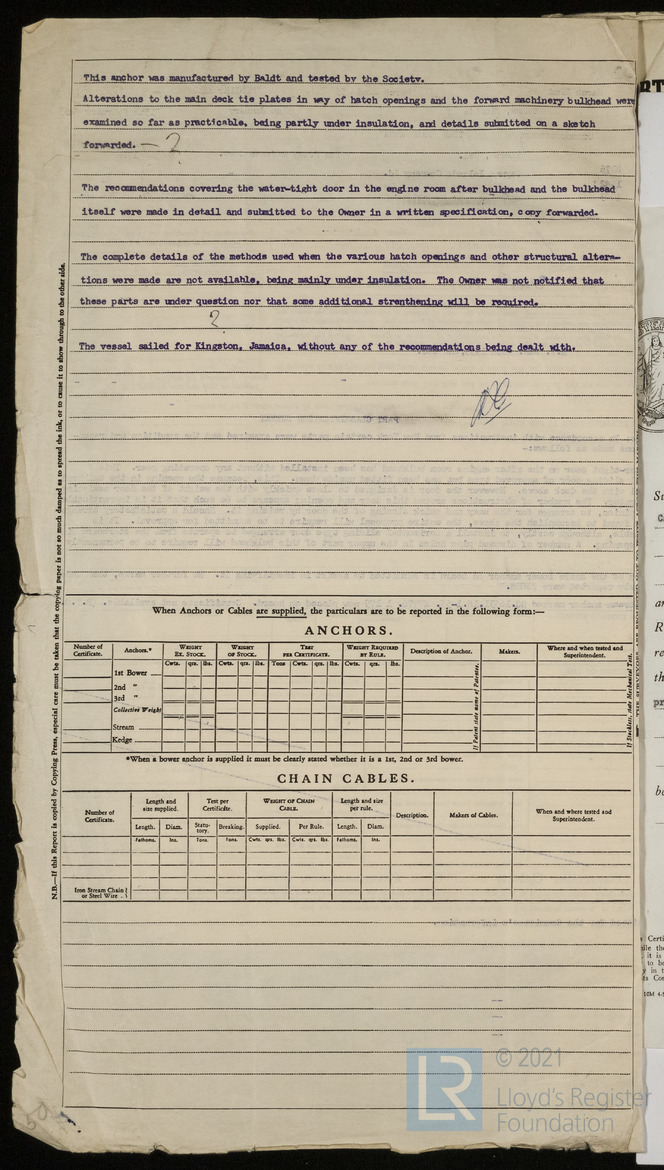 This anchor was manufactured by Baldt and tested by the Society.
Alterations to the main deck tie plates in way of hatch openings and the forward machinery bulkhead were
examined so far as practicable, being partly under insulation, and details submitted on a sketch
forwarded. — 2
The recommendations covering the water-tight door in the engine room after bulkhead and the bulkhead
itself were made in detail and submitted to the Owner in a written specification, copy forwarded.
The complete details of the methods used when the various hatch openings and other structural altera-
tions were made are not available, being mainly under insulation. The Owner was not notified that
these parts are under question nor that some additional strenthening will be required.
?
The vessel sailed for Kingston, Jamaica, without any of the recommendations being dealt with.
N.B.—If this Report is copied by Copying Press, especial care must be taken that the copying paper is not so much damped as to spread the ink, or to cause it to show through to the other side.
When Anchors or Cables are supplied, the particulars are to be reported in the following form:—
ANCHORS.
Number of Certificate. Anchors.* Weight Ex. Stock. Weight of Stock. Test per Certificate. Weight Required by Rule. Description of Anchor. Makers. Where and when tested and Superintendent.
Cwts. qrs. lbs. Cwts. qrs. lbs. Tons Cwts. qrs. lbs. Cwts. qrs. lbs.
1st Bower
2nd "
3rd "
Collective Weight
Stream
Kedge
If Patent state name of Patentee.
If Stockless, state Mechanical Test.
*When a bower anchor is supplied it must be clearly stated whether it is a 1st, 2nd or 3rd bower.
CHAIN CABLES.
Number of Certificate. Length and size supplied. Test per Certificate. Weight of Chain Cable. Length and size per rule. Description. Makers of Cables. When and where tested and Superintendent.
Length. Diam. Statutory. Breaking. Supplied. Per Rule. Length. Diam.
Fathoms. Ins. Tons. Tons. Cwts. qrs. lbs. Cwts. qrs. lbs. Fathoms. Ins.
Iron Stream Chain
or Steel Wire
LR © 2021
Lloyd's Register
Foundation